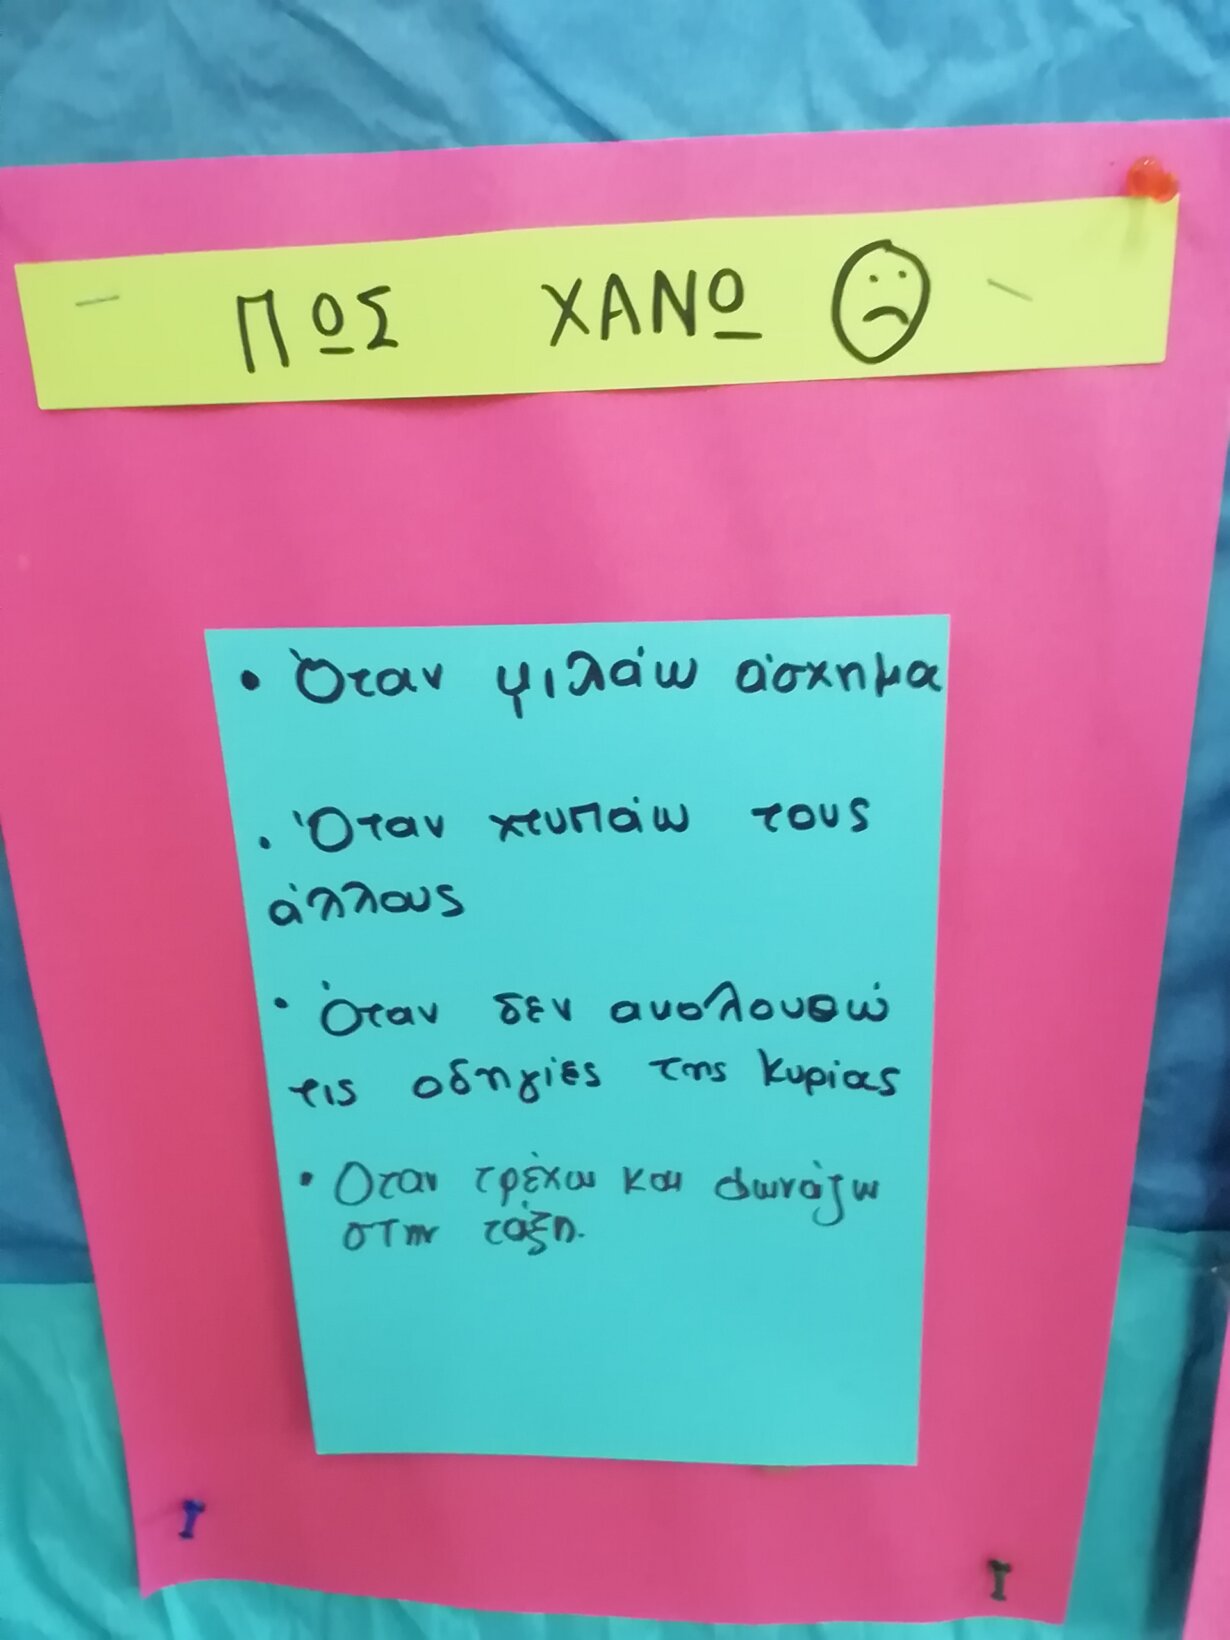 ΠΩΣ ΧΑΝΩ
• Όταν μιλάω άσχημα
• Όταν χτυπάω τους
άλλους
• Όταν δεν ακολουθώ
τις οδηγίες της κυρίας
• Όταν τρέχω και φωνάζω
στην τάξη.